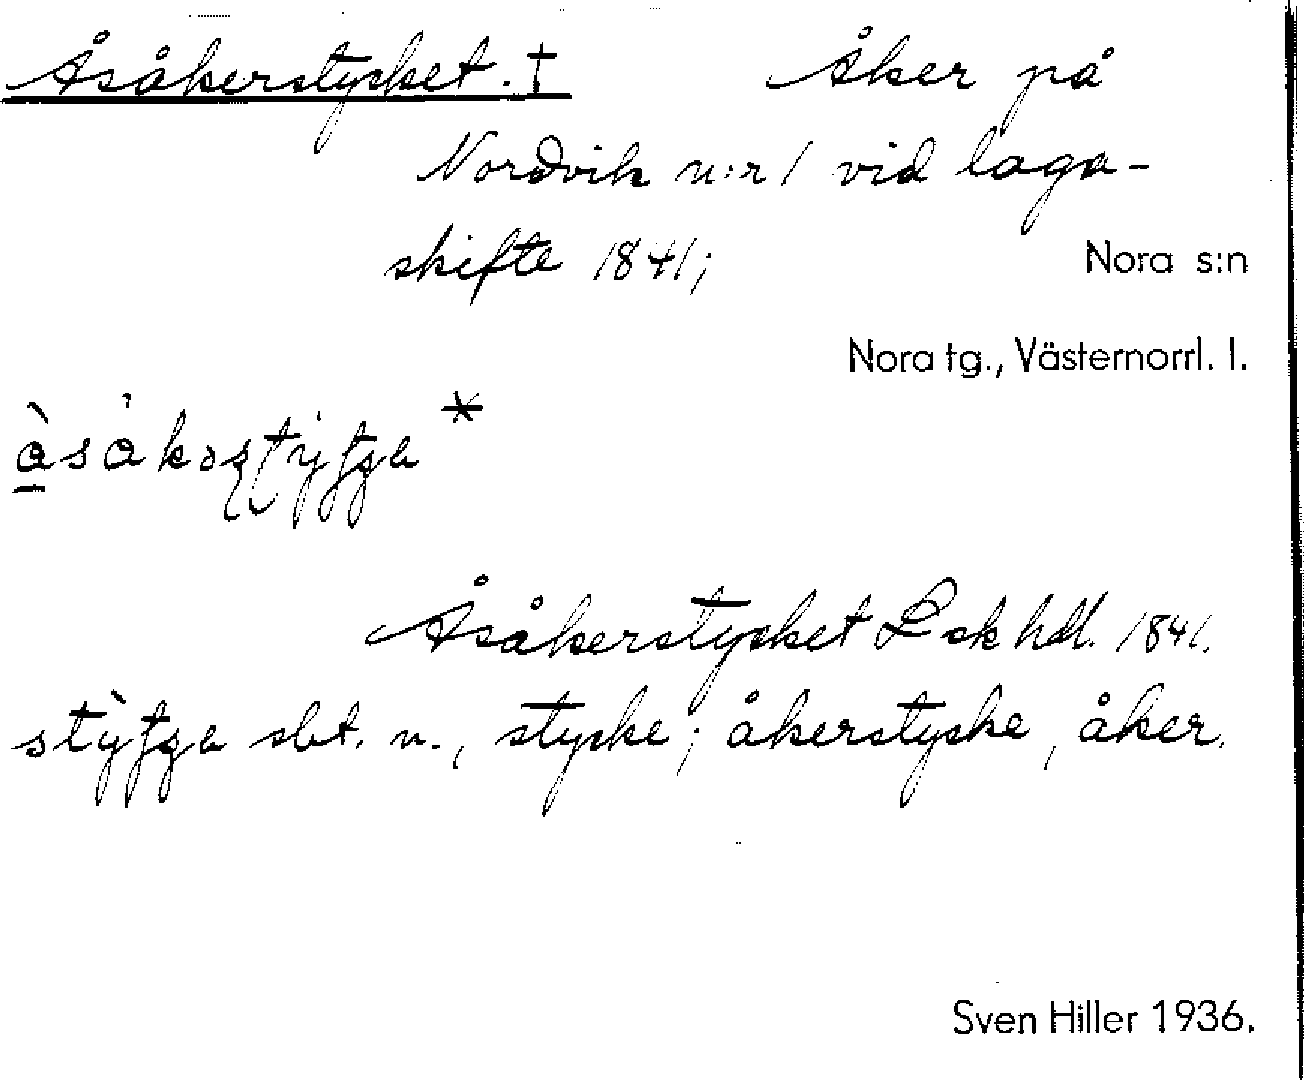 Åsåkerstycket. † Åker på
Nordvik n:r 1 vid laga-
skifte 1841; Nora s:n
Nora tg., Västernorrl. l.
Åsåkerstycket Lsk hdl. 1841.
sbt. n., stycke; åkerstycke, åker.
Sven Hiller 1936.